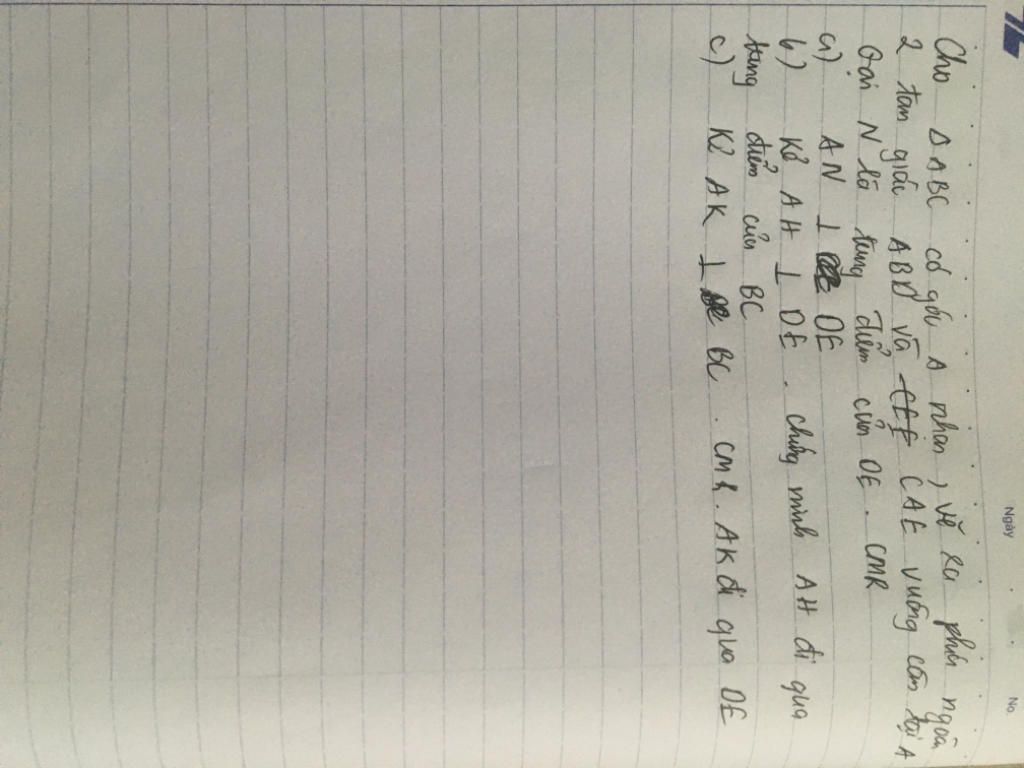 Ngày
No.
Cho Δ ABC có góc A nhọn, vẽ ra phía ngoài
2 tam giác ABD và CAE vuông cân tại A
Gọi N là trung điểm của DE. CMR
a) AN ⊥ DE
b) Kẻ AH ⊥ DE. chứng minh AH đi qua
trung điểm của BC
c) Kẻ AK ⊥ BC. CMR. AK đi qua DE